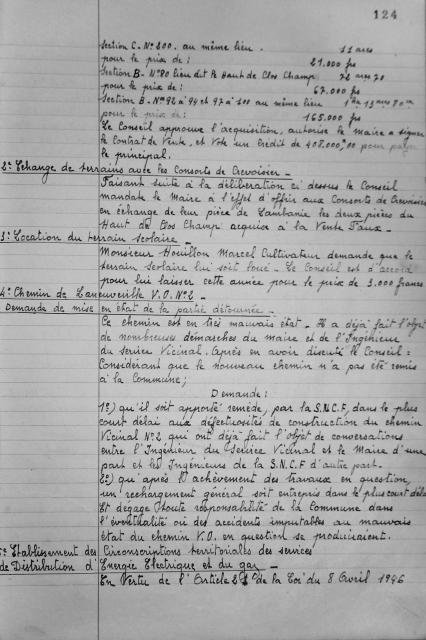 124
Section C - N° 200. au même lieu. 11 ares
pour le prix de: 21.000 frs
Section B - N° 80 lieu dit le Haut de Clos Champ 72 ares 70
pour le prix de: 67.000 frs
Section B - N° 92 à 94 et 97 à 100 au même lieu 1 ha 13 ares
pour le prix de: 165.000 frs
Le Conseil approuve l'acquisition, autorise le Maire à signer
le Contrat de Vente, et Vote un Crédit de 408.000,00 pour payer
le principal.
2° Echange de terrains avec les Consorts de Crevoisier -
Faisant suite à la délibération ci dessus le Conseil
mandate le Maire à l'effet d'offrir aux Consorts de Crevoisier
en échange de leur pièce de les deux pièces du
Haut de Clos Champ acquise à la Vente Faux -
3° Location du terrain scolaire -
Monsieur Houillon Marcel Cultivateur demande que le
terrain scolaire lui soit loué - Le Conseil est d'accord
pour lui laisser cette année pour le prix de 3.000 francs
4° Chemin de Laneuveville V.O. N° 2 -
Demande de mise en état de la partie détournée -
Ce chemin est en très mauvais état - Il a déjà fait l'objet
de nombreuses démarches du Maire et de l'Ingénieur
du Service Vicinal. Après en avoir discuté le Conseil:
Considérant que le nouveau chemin n'a pas été remis
à la Commune;
Demande:
1°) qu'il soit apporté remède, par la S.N.C.F, dans le plus
court délai aux défectuosités de construction du chemin
Vicinal N° 2, qui ont déjà fait l'objet de conversations
entre l'Ingénieur du Service Vicinal et le Maire d'une
part et les Ingénieurs de la S.N.C.F d'autre part -
2°) qu'après l'achèvement des travaux en question
un rechargement général soit entrepris dans le plus court délai
Et dégage toute responsabilité de la Commune dans
l'éventualité où des accidents imputables au mauvais
état du chemin V.O. en question se produiraient.
5° Etablissement des Circonscriptions territoriales des services
de Distribution d'Energie Electrique et du gaz -
En Vertu de l'Article de la Loi du 8 Avril 1946